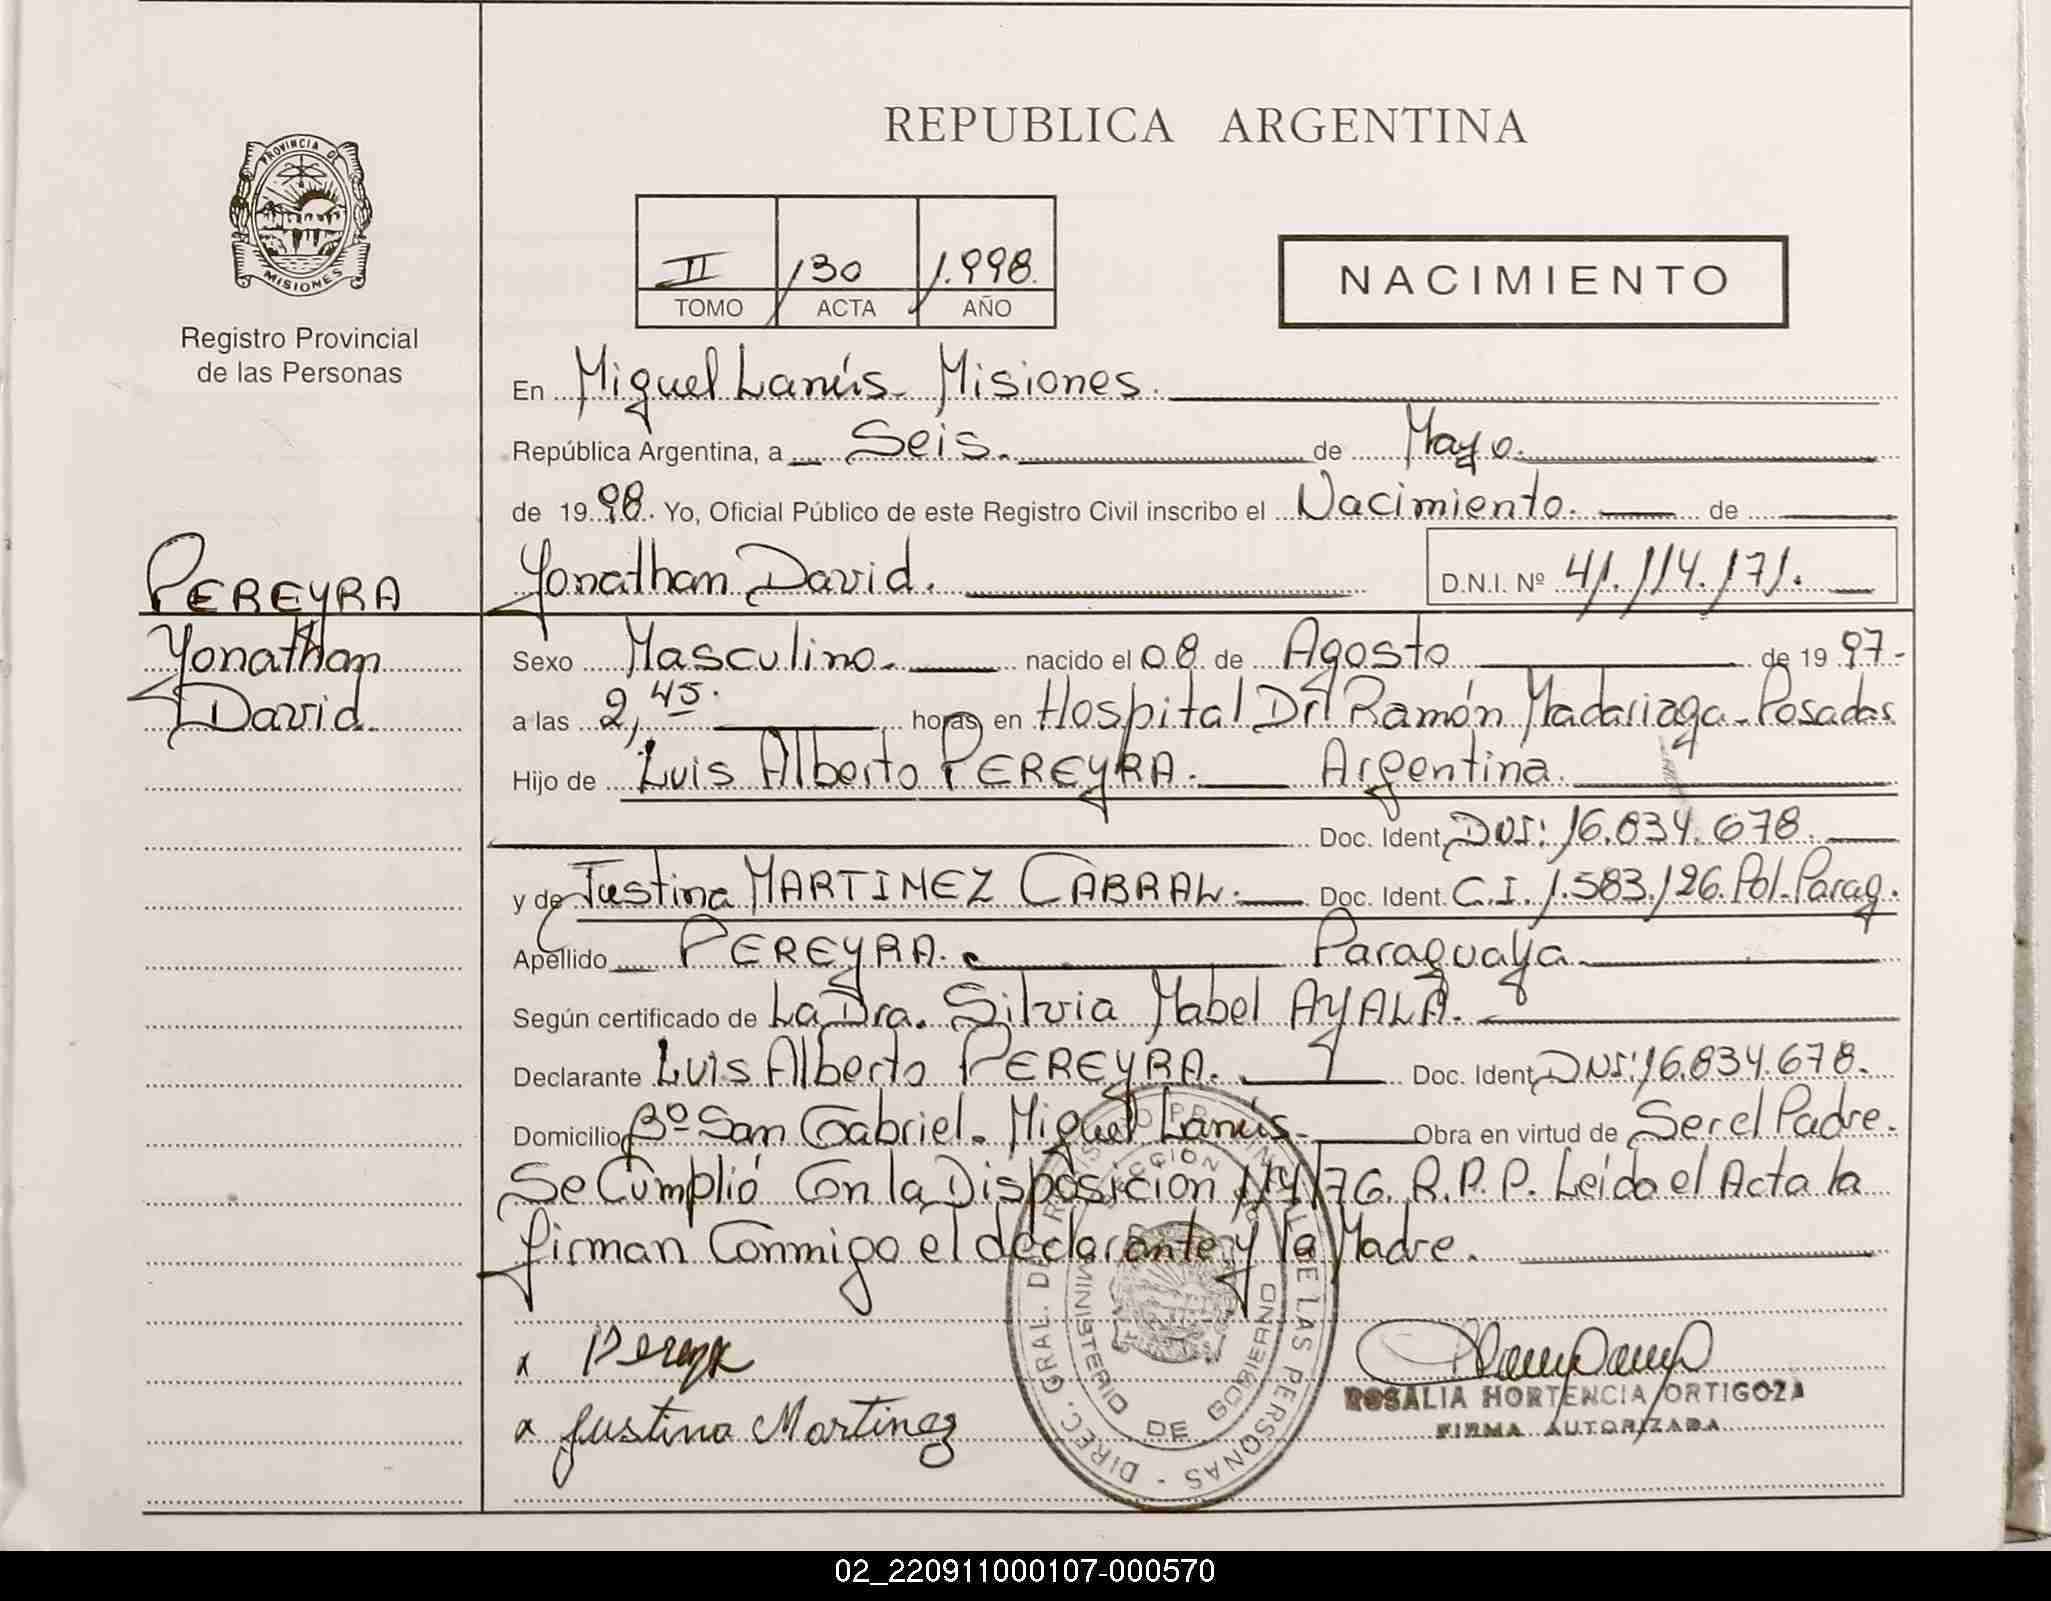 REPUBLICA ARGENTINA
PROVINCIA DE
MISIONES
Registro Provincial
de las Personas
II 130 1.998.
TOMO ACTA AÑO
NACIMIENTO
En Miguel Lanús - Misiones.
República Argentina, a Seis. de Mayo.
de 19 98. Yo, Oficial Público de este Registro Civil inscribo el Nacimiento. de
PEREYRA
Yonathan
David.
Yonathan David. D.N.I. Nº 41.114.171.
Sexo Masculino. nacido el 08 de Agosto de 19 97.-
a las 2,45. horas en Hospital Dr. Ramón Madariaga - Posadas
Hijo de Luis Alberto PEREYRA. Argentina.
Doc. Ident. DNI: 16.834.678.
y de Justina MARTINEZ CABRAL. Doc. Ident. C.I. 1.583.126. Pol. Parag.
Apellido PEREYRA. Paraguaya.
Según certificado de La Dra. Silvia Mabel AYALA.
Declarante Luis Alberto PEREYRA. Doc. Ident. DNI: 16.834.678.
Domicilio Bº San Gabriel. Miguel Lanús. Obra en virtud de Ser el Padre.
Se Cumplió Con la Disposición 114/76. R.P.P. Leída el Acta la
firman Conmigo el declarante y la Madre.
x Pereyra
x Justina Martinez
DIREC. GRAL. DE LAS PERSONAS
MINISTERIO DE GOBIERNO
ROSALIA HORTENCIA ORTIGOZA
FIRMA AUTORIZADA
02_220911000107-000570